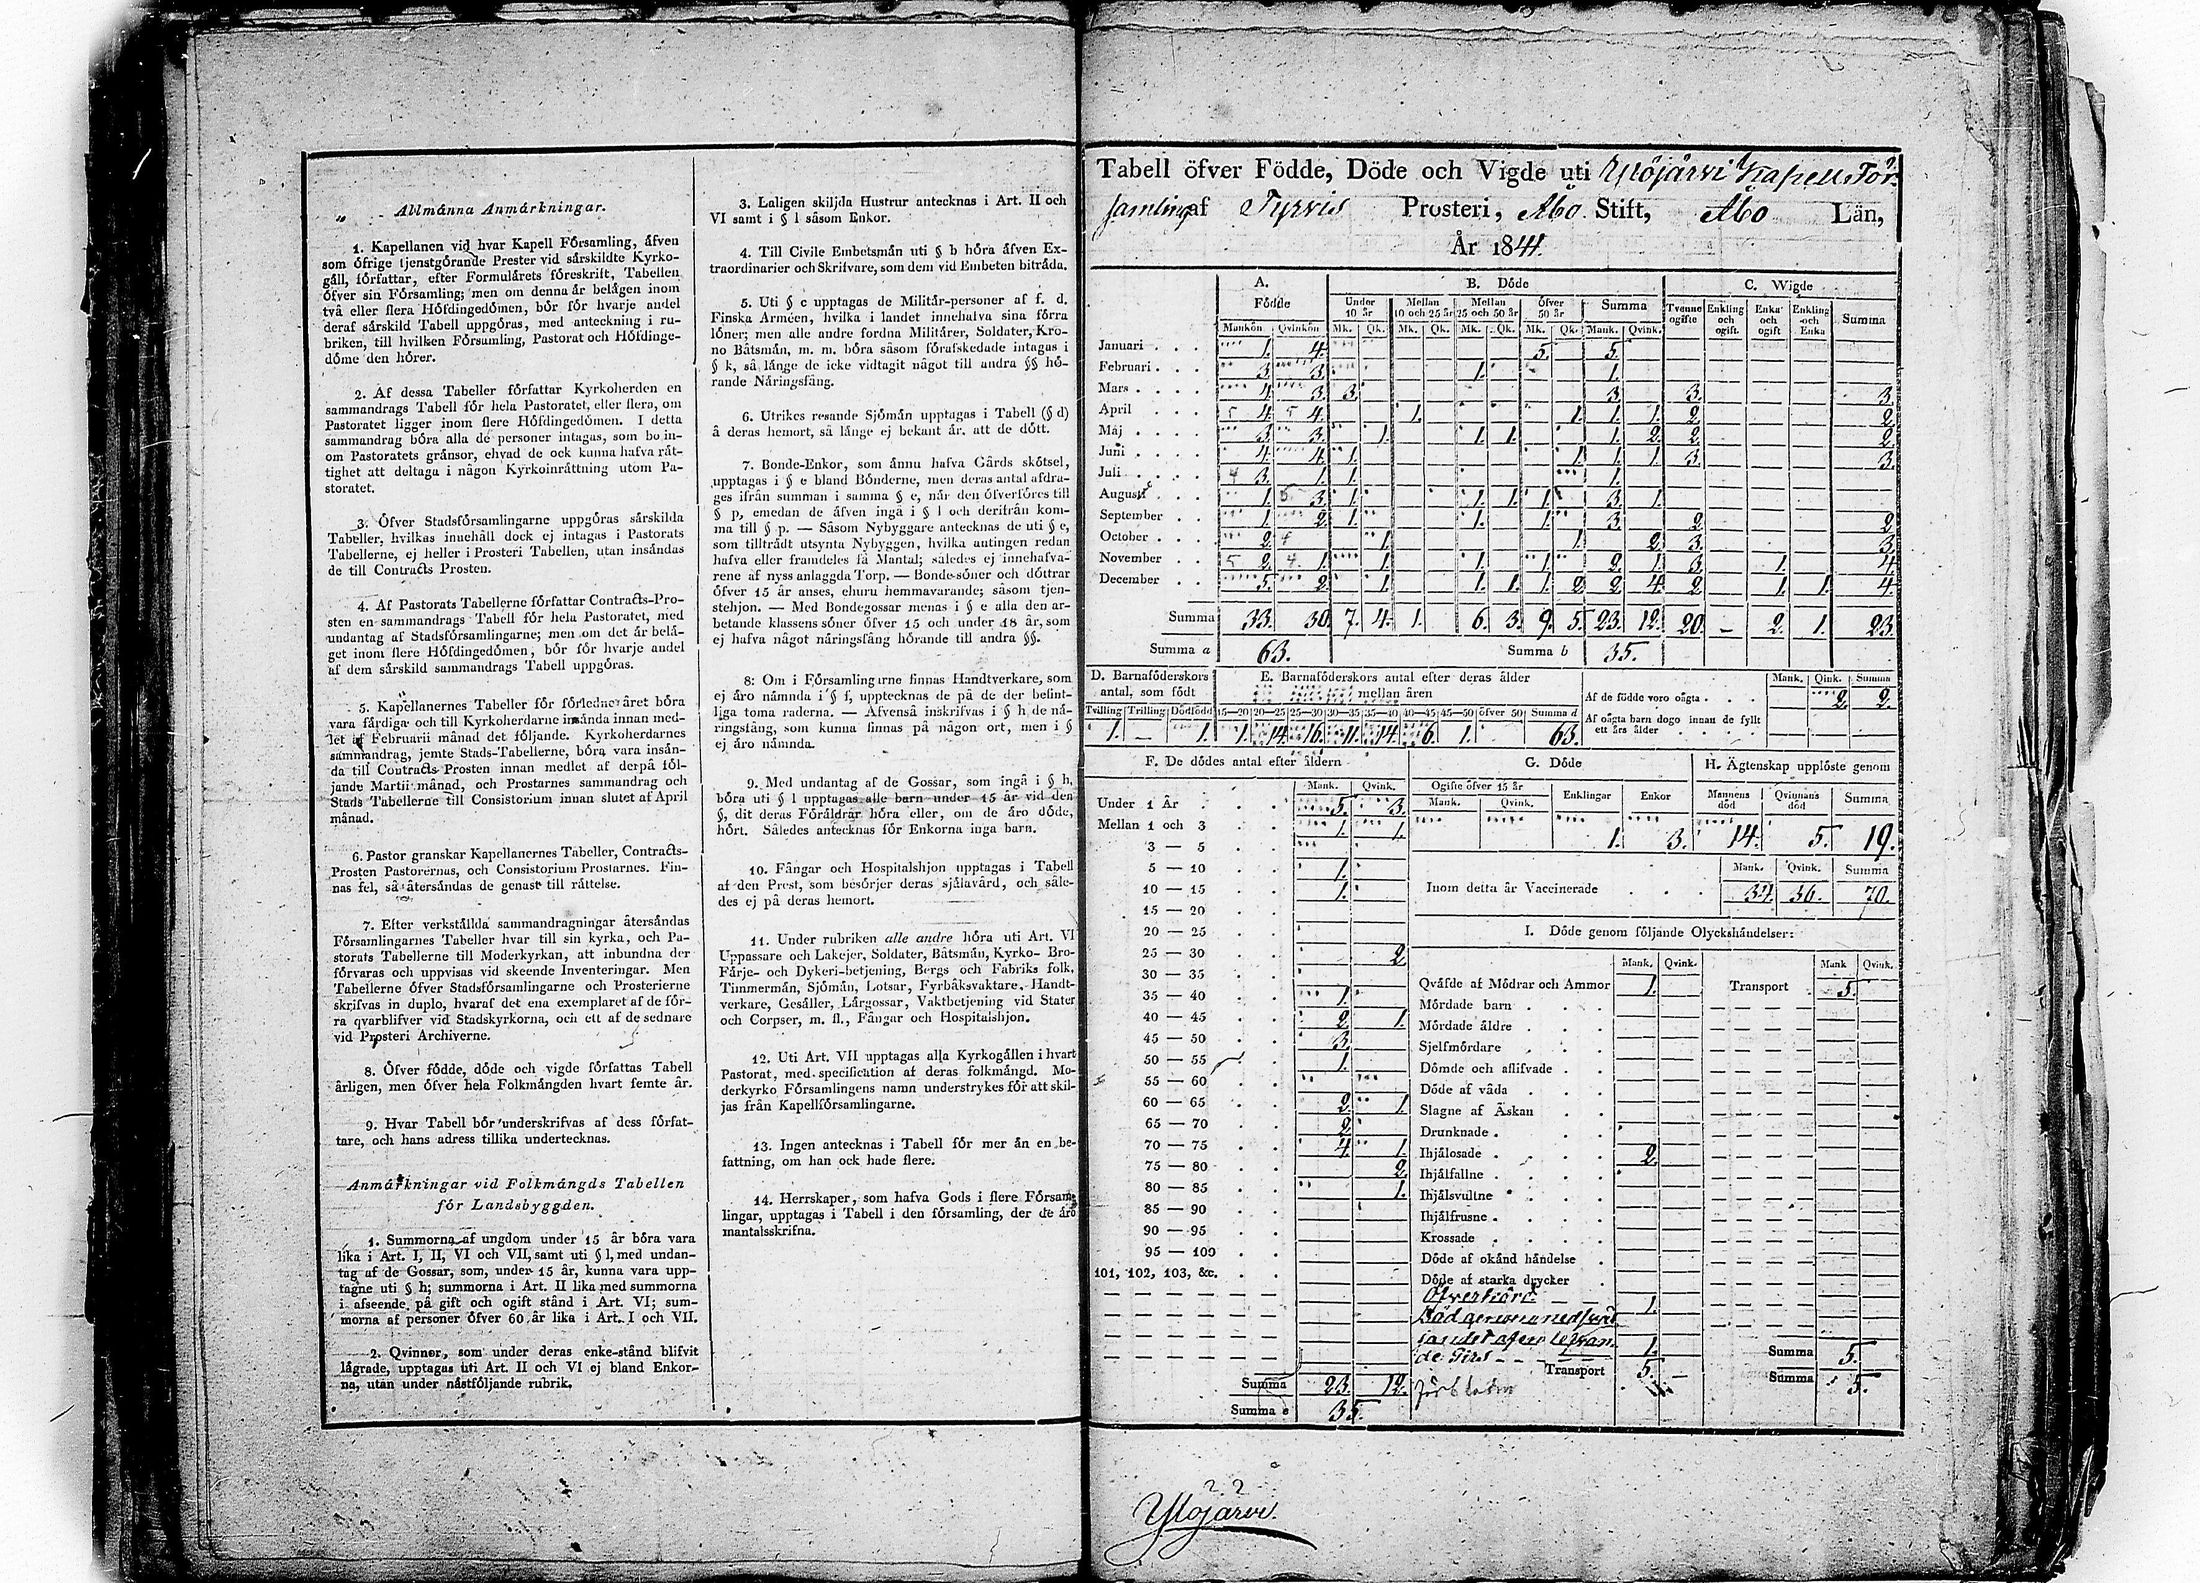 Allmánna Anmárkningar.
1. Kapellanen vid hvar Kapell Fórsamling, áfven
som ófrige tjenstgórande Prester vid sárskildte Kyrko-
gáll, fórfattar, efter Formulårets fóreskrift, Tabellen
ófver sin Fórsamling; men om denna år belågen inom
två eller flera Hófdingedómen, bór fór hvarje andel
deraf sårskild Tabell uppgóras, med anteckning i ru-
briken, till hvilken Fórsamling, Pastorat och Hófdinge-
dóme den hórer.
2. Af dessa Tabeller fórfattar Kyrkoherden en
sammandrags Tabell fór hela Pastoratet, eller flera, om
Pastoratet ligger inom flere Hófdingedómen. I detta
sammandrag bóra alla de personer intagas, som bo in-
om Pastoratets grånsor, ehvad de ock kunna hafva råt-
tighet att deltaga i någon Kyrkoinråttning utom Pa-
storatet.
3. Ófver Stadsfórsamlingarne uppgóras sårskilda
Tabeller, hvilkas innehåll dock ej intagas i Pastorats
Tabellerne, ej heller i Prosteri Tabellen, utan insåndas
de till Contracts Prosten.
4. Af Pastorats Tabellerne fórfattar Contracts-Pro-
sten en sammandrags Tabell fór hela Pastoratet, med
undantag af Stadsfórsamlingarne; men om det år belå-
get inom flere Hófdingedómen, bór fór hvarje andel
af dem sårskild sammandrags Tabell uppgóras.
5. Kapellanernes Tabeller fór fórledne året bóra
vara fårdiga och till Kyrkoherdarne insånda innan med-
let af Februarii månad det fóljande. Kyrkoherdarnes
sammandrag, jemte Stads-Tabellerne, bóra vara insån-
da till Contracts Prosten innan medlet af derpå fól-
jande Martii månad, och Prostarnes sammandrag och
Stads Tabellerne till Consistorium innan slutet af April
månad.
6. Pastor granskar Kapellanernes Tabeller, Contracts-
Prosten Pastorernas, och Consistorium Prostarnes. Fin-
nas fel, så återsåndas de genast till råttelse.
7. Efter verkstållda sammandragningar återsåndas
Fórsamlingarnes Tabeller hvar till sin kyrka, och Pa-
storats Tabellerne till Moderkyrkan, att inbundna der
fórvaras och uppvisas vid skeende Inventeringar. Men
Tabellerne ófver Stadsfórsamlingarne och Prosterierne
skrifvas in duplo, hvaraf det ena exemplaret af de fór-
ra qvarblifver vid Stadskyrkorna, och ett af de sednare
vid Prosteri Archiverne.
8. Ófver fódde, dóde och vigde fórfattas Tabell
årligen, men ófver hela Folkmångden hvart femte år.
9. Hvar Tabell bór underskrifvas af dess fórfat-
tare, och hans adress tillika undertecknas.
Anmárkningar vid Folkmångds Tabellen
fór Landsbyggden.
1. Summorna af ungdom under 15 år bóra vara
lika i Art. I, II, VI och VII, samt uti § l, med undan-
tag af de Gossar, som, under 15 år, kunna vara upp-
tagne uti § h; summorna i Art. II lika med summorna
i afseende på gift och ogift stånd i Art. VI; sum-
morna af personer ófver 60 år lika i Art. I och VII.
2. Qvinnor, som under deras enke-stånd blifvit
lågrade, upptagas uti Art. II och VI ej bland Enkor-
na, utan under nåstfóljande rubrik.
3. Laligen skiljda Hustrur antecknas i Art. II och
VI samt i § l såsom Enkor.
4. Till Civile Embetsmån uti § b hóra åfven Ex-
traordinarier och Skrifvare, som dem vid Embeten bitråda.
5. Uti § c upptagas de Militår-personer af f. d.
Finska Arméen, hvilka i landet innehafva sina fórra
lóner; men alle andre fordna Militårer, Soldater, Kro-
no Båtsmån, m. m. bóra såsom fórafskedade intagas i
§ k, så långe de icke vidtagit något till andra §§ hó-
rande Nåringsfång.
6. Utrikes resande Sjómån upptagas i Tabell (§ d)
å deras hemort, så långe ej bekant år, att de dótt.
7. Bonde-Enkor, som ånnu hafva Gårds skótsel,
upptagas i § e bland Bónderne, men deras antal afdra-
ges ifrån summan i samma § e, når den ófverfóres till
§ p, emedan de åfven ingå i § l och derifrån kom-
ma till § p. — Såsom Nybyggare antecknas de uti § e,
som tilltrådt utsynta Nybyggen, hvilka antingen redan
hafva eller framdeles få Mantal; således ej innehafva-
rene af nyss anlaggda Torp. — Bonde-sóner och dóttrar
ófver 15 år anses, ehuru hemmavarande; såsom tjen-
stehjon. — Med Bondegossar menas i § e alla den ar-
betande klassens sóner ófver 15 och under 18 år, som
ej hafva något nåringsfång hórande till andra §§.
8: Om i Fórsamlingarne finnas Handtverkare, som
ej åro nåmnda i § f, upptecknas de på de der befint-
liga toma raderna. — Åfvenså inskrifvas i § h de nå-
ringsfång, som kunna finnas på någon ort, men i §
ej åro nåmnda.
9. Med undantag af de Gossar, som ingå i § h,
bóra uti § l upptagas alle barn under 15 år vid den
§, dit deras Fóråldrar hóra eller, om de åro dóde,
hórt. Således antecknas fór Enkorna inga barn.
10. Fångar och Hospitalshjon upptagas i Tabell
af den Prest, som besórjer deras sjålavård, och såle-
des ej på deras hemort.
11. Under rubriken alle andre hóra uti Art. VI
Uppassare och Lakejer, Soldater, Båtsmån, Kyrko- Bro-
Fårje- och Dykeri-betjening, Bergs och Fabriks folk,
Timmermån, Sjómån, Lotsar, Fyrbåksvaktare, Handt-
verkare, Gesåller, Lårgossar, Vaktbetjening vid Stater
och Corpser, m. fl., Fångar och Hospitalshjon.
12. Uti Art. VII upptagas alla Kyrkogållen i hvart
Pastorat, med specification af deras folkmångd. Mo-
derkyrko Fórsamlingens namn understrykes fór att skil-
jas från Kapellfórsamlingarne.
13. Ingen antecknas i Tabell fór mer ån en be-
fattning, om han ock hade flere.
14. Herrskaper, som hafva Gods i flere Fórsam-
lingar, upptagas i Tabell i den fórsamling, der de åro
mantalsskrifna.
Tabell öfver Födde, Döde och Vigde uti Ylöjärvi Kapell För-
samling af Tyrvis Prosteri, Åbo Stift, Åbo Län,
År 1841.
A. B. Dóde C. Wigde
Fódde Under 10 år Mellan 10 och 25 år Mellan 25 och 50 år Ófver 50 år Summa Tvenne ogifte Enkling och ogift. Enka och ogift Enkling och Enka Summa
Mankön Qvinkön Mk. Qk. Mk. Qk. Mk. Qk. Mk. Qk. Mank. Qvink.
Januari 1. 4. 5. 5.
Februari 3. 3. 1. 1.
Mars 4. 3. 3. 3. 3. 3.
April 5 4. 5 4. 1. 1. 1. 1. 2. 2.
Maj 3. 3. 1. 1. 1. 1. 2. 2. 2.
Juni 4. 4. 1. 1. 1. 1. 3. 3.
Juli 4 3. 1. 1. 1.
Augusti 1. 3. 1. 1. 1. 1. 3. 1.
September 1. 2. 1. 1. 1. 3. 2. 2.
October 2. 1. 1. 2. 3. 3.
November 5 2. 4 1. 1. 1. 1. 2. 1. 3. 1. 4.
December 5. 2. 1. 1. 1. 1. 2. 2. 4. 2. 1. 1. 4.
Summa 33. 30. 7. 4. 1. 6. 3. 9. 5. 23. 12. 20. — 2. 1. 23.
Summa a 63. Summa b 35.
D. Barnafóderskors antal, som fódt
Tvilling Trilling Dödfödd
1. — 1.
E. Barnafóderskors antal efter deras ålder
mellan åren
15—20 20—25 25—30 30—35 35—40 40—45 45—50 öfver 50 Summa d
1. 14. 16. 11. 14. 6. 1. 63.
Mank. Qink. Summa
Af de födde voro oägta 2. 2.
Af oägta barn dogo innan de fyllt
ett års ålder
F. De dódes antal efter åldern
Mank. Qvink.
Under 1 År 5. 3.
Mellan 1 och 3 1. 1.
3 — 5
5 — 10 1.
10 — 15 1.
15 — 20
20 — 25
25 — 30 2.
30 — 35
35 — 40 1.
40 — 45 2. 1.
45 — 50 3.
50 — 55 1.
55 — 60
60 — 65 2. 1.
65 — 70 2.
70 — 75 4. 1.
75 — 80 2.
80 — 85 1.
85 — 90
90 — 95
95 — 100
101, 102, 103, &c.
Summa 23. 12.
Summa e 35.
G. Dóde
Ogifte ófver 15 år Enklingar Enkor
Mank. Qvink.
1. 3.
H. Ägtenskap upplöste genom
Mannens död Qvinnans död Summa
14. 5. 19.
Mank. Qvink. Summa
Inom detta år Vaccinerade 34. 36. 70.
I. Dóde genom fóljande Olyckshåndelser:
Mank. Qvink. Mank Qvink.
Qvåfde af Módrar och Ammor 1. Transport 5.
Mórdade barn
Mórdade åldre
Sjelfmórdare
Dómde och aflifvade
Dóde af våda
Slagne af Åskan
Drunknade
Ihjålosade 2.
Ihjålfallne
Ihjålsvultne
Ihjålfrusne
Krossade
Dóde af okånd håndelse
Dóde af starka drycker
Öfverkörd 1.
Död genom nedsvä
1. Summa 5.
Transport 5. Summa 5.
22
Ylöjärvi.